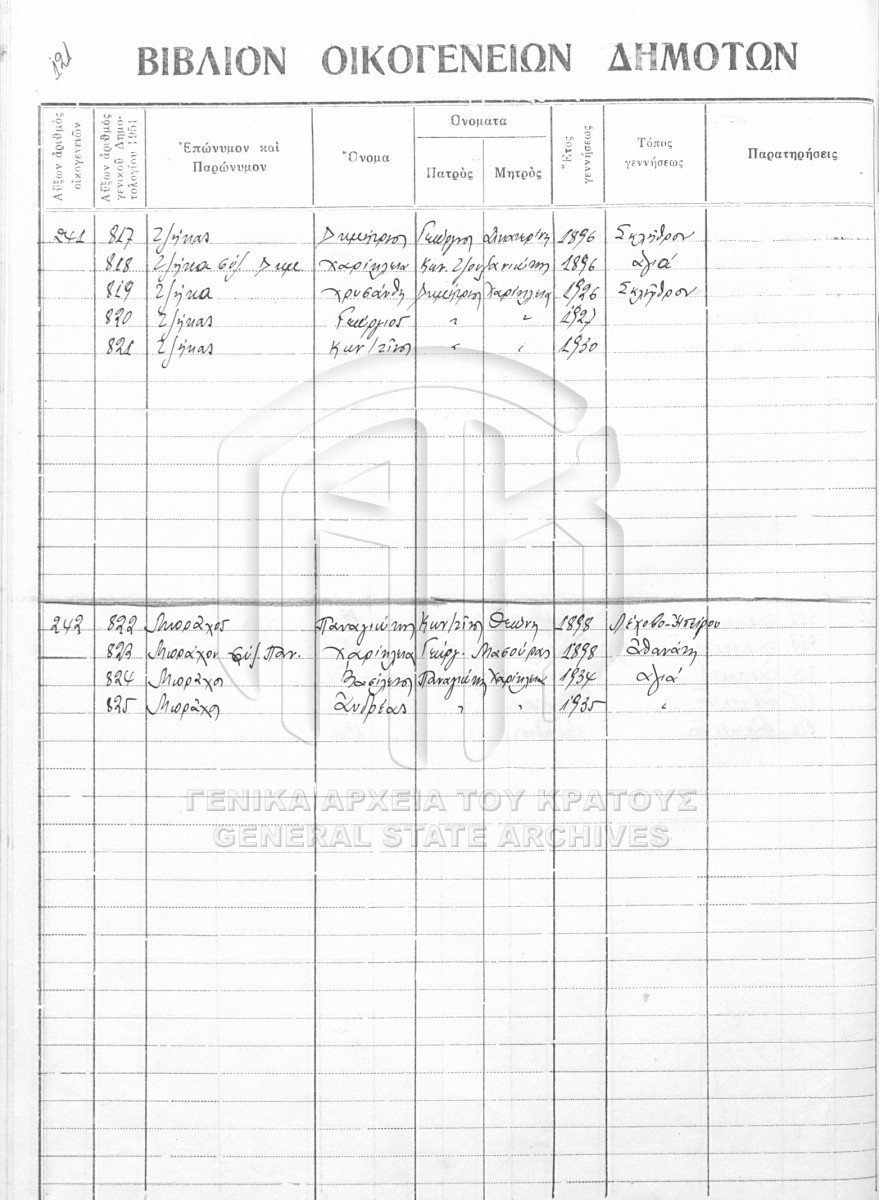 121
ΒΙΒΛΙΟΝ ΟΙΚΟΓΕΝΕΙΩΝ ΔΗΜΟΤΩΝ
Αὔξων ἀριθμὸς οἰκογενειῶν
Αὔξων ἀριθμὸς γενικοῦ Δημοτολογίου 1951
Ἐπώνυμον καὶ Παρώνυμον
Ὄνομα
Ονοματα
Πατρὸς Μητρὸς
Ἔτος γεννήσεως
Τόπος γεννήσεως
Παρατηρήσεις
241 817 Τζήκας Δημήτριος Γεώργιος Αικατερίνη 1896 Σκλῆθρον
818 Τζήκα συζ. Δημ. Χαρίκλεια Κων. 1896 Ἁγιά
819 Τζήκα Χρυσάνθη Δημήτριος Χαρίκλεια 1926 Σκλῆθρον
820 Τζήκας Γεώργιος " " 1927
821 Τζήκας Κων/τῖνος " " 1930
242 822 Μπράχος Παναγιώτης Κων/τῖνος Θεώνη 1898 Λέχοβο-Ηπείρου
823 Μπράχου συζ. Παν. Χαρίκλεια Γεώργ. Μασούρας 1898 Ἀθανάτη
824 Μπράχος Βασίλειος Παναγιώτης Χαρίκλεια 1934 Ἁγιά
825 Μπράχος Ἀνδρέας " " 1935 "
ΓΕΝΙΚΑ ΑΡΧΕΙΑ ΤΟΥ ΚΡΑΤΟΥΣ
GENERAL STATE ARCHIVES